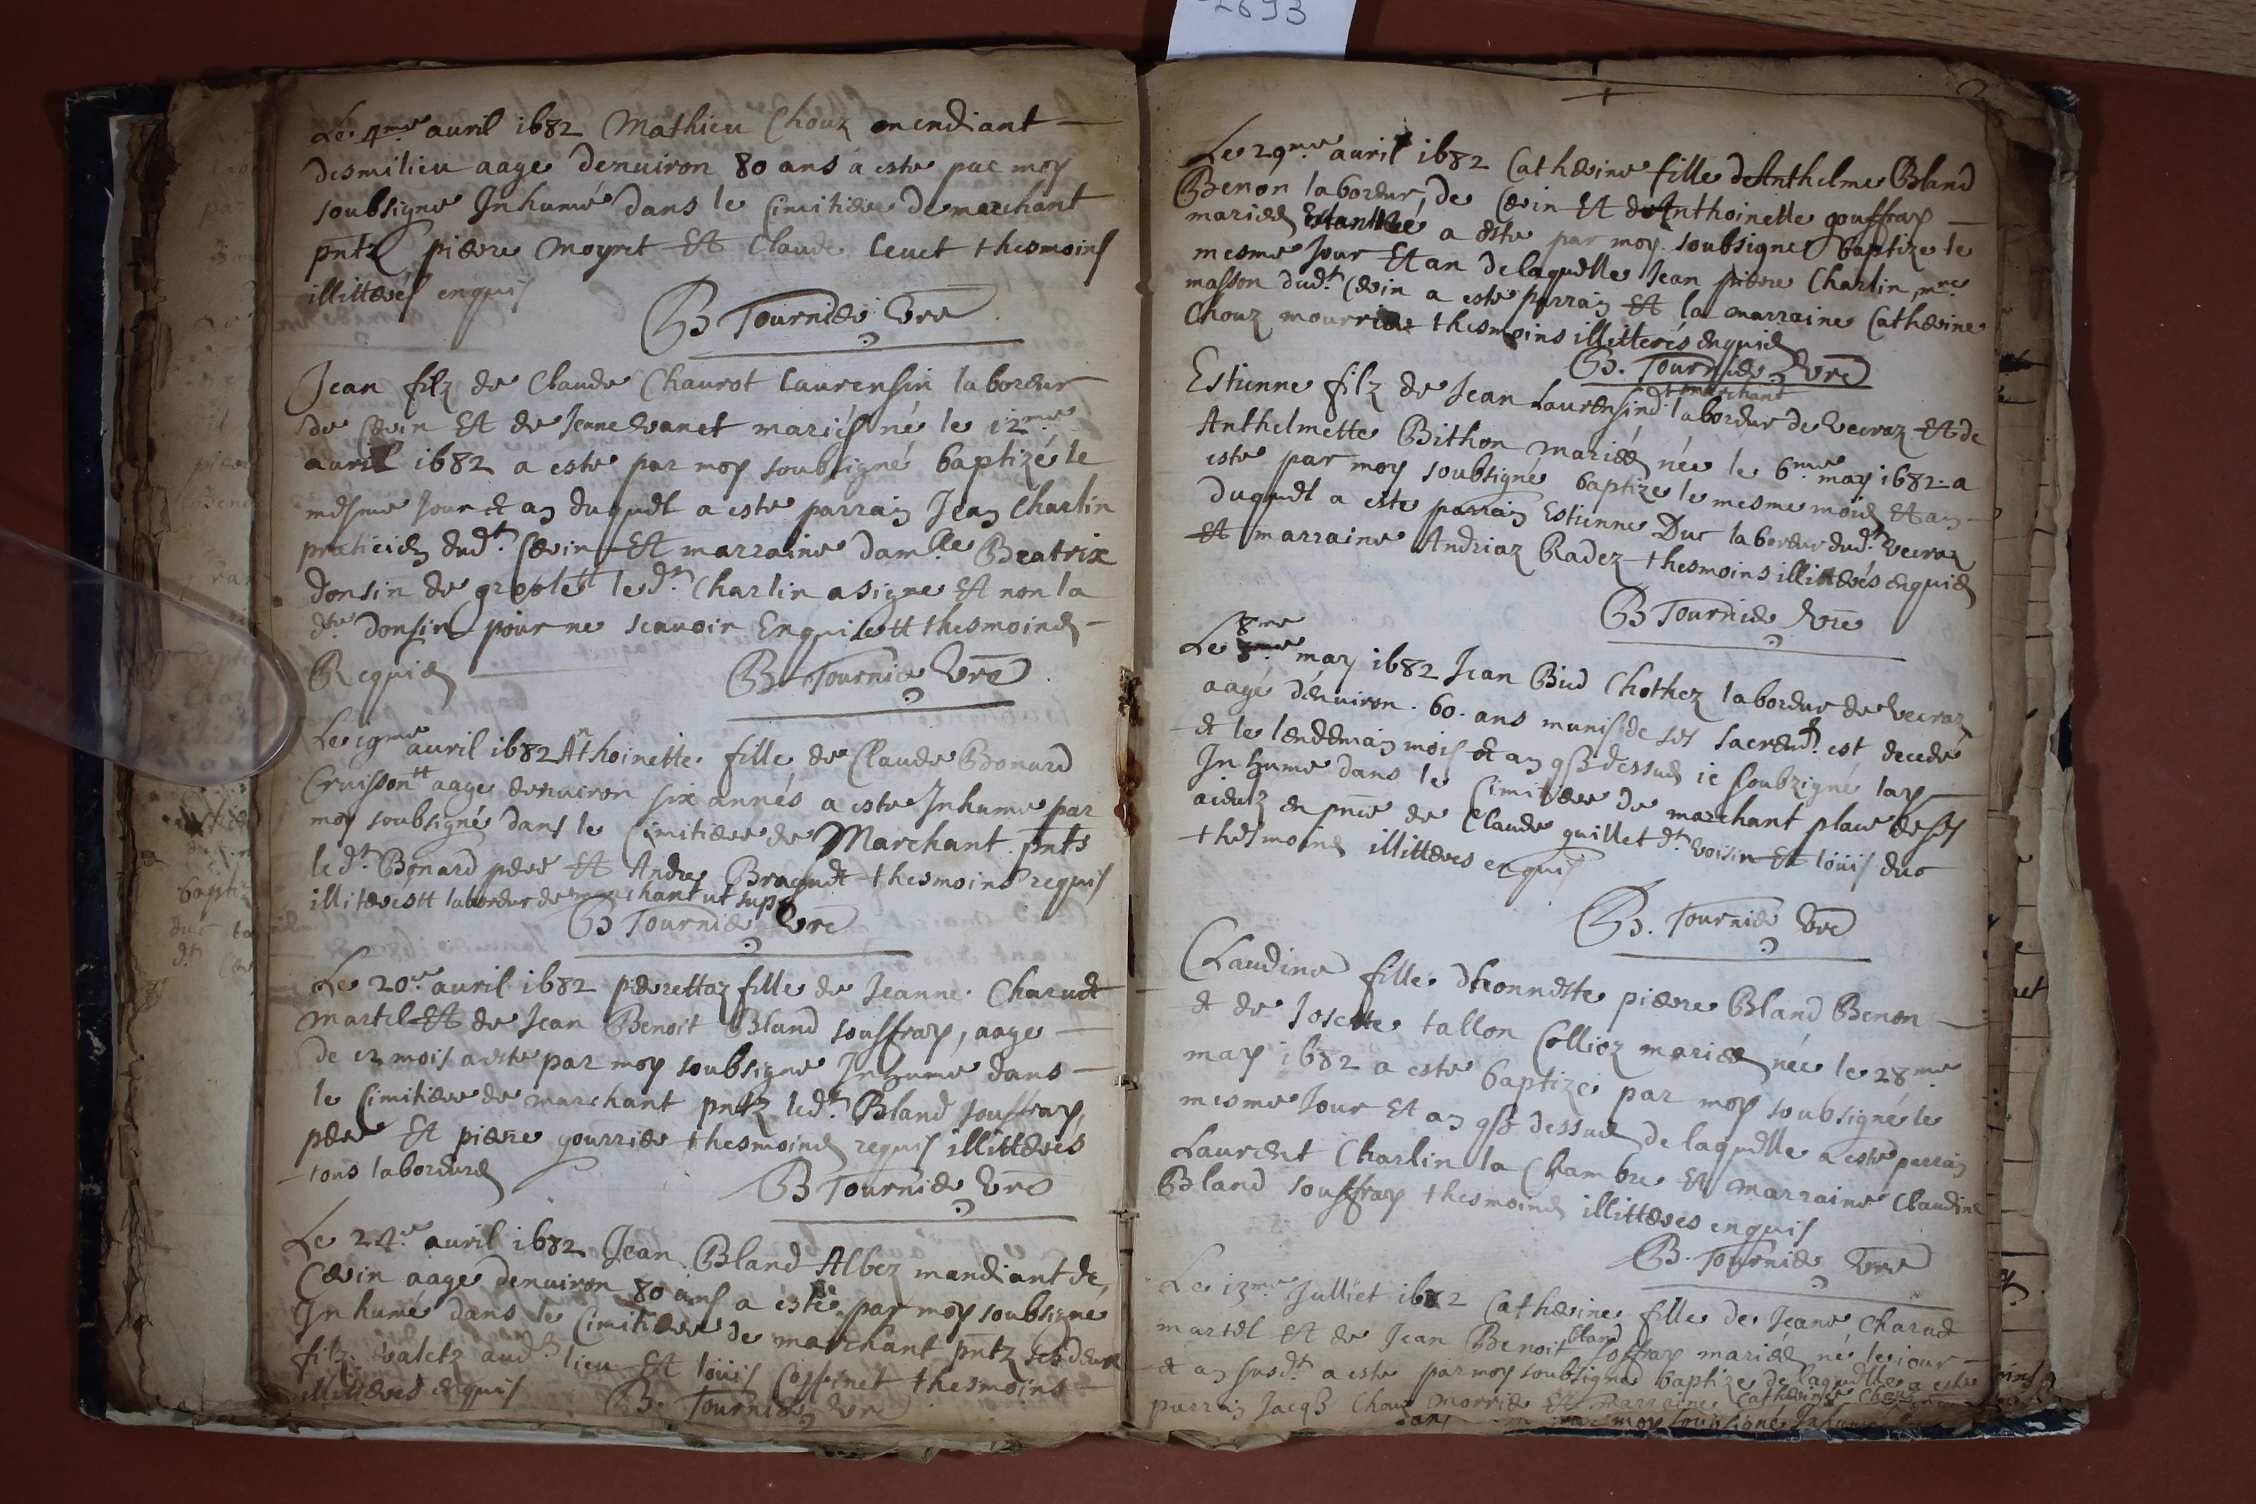 2693
Le 4me auril 1682 Mathieu Chouz mendiant
desmilieu aage denuiron 80 ans a este par moy
soubsigne Inhumé dans le Cimitiere de marchant
pntz pierre moyret Et Claude leuet thesmoins
illitterés enquis
B Tournier Vre
Jean filz de Claude Chaurot laurensin laboreur
de Cerin Et de Jeanne Vanet mariés né le 12me
auril 1682 a este par moy soubsigné baptizé le
mesme Jour et an duquel a este parrain Jean Charlin
praticien dudt Cerin Et marraine damlle Beatrix
donsin de le dt Charlin a signe Et non la
dte donsin pour ne scauoir Enquise tt thesmoins
Requis
B Tournier Vre
Le 19me auril 1682 Anthoinette fille de Claude Bonard
Cruisson tt aage denuiron six annés a este Inhume par
moy soubsigné dans le Cimitiere de Marchant pnts
le dt Bonard pere Et Andre Braquet thesmoins requis
illiterés tt laboreur de marchant ut supra
B Tournier Vre
Le 20e auril 1682 perettaz fille de Jeanne Charuet
martel Et de Jean Benoit Bland souffray, aage
de 12 mois a este par moy soubsigne Inhume dans
le Cimitiere de marchant pntz led.t Bland souffray
pere Et pierre gourrier thesmoins requis illitterés
tous laboreurs
B Tournier Vre
Le 24e auril 1682 Jean Bland Albez mandiant de
Cerin aage denuiron 80 ans a este par moy soubsigné
Inhumé dans le Cimitiere de marchant pntz ses deux
filz valetz aud.t lieu Et loüis Cossinet thesmoins
illitteres enquis
B. Tournier Vre
Le 29me auril 1682 Catherine fille de Anthelme Bland
Benon laboreur, de Cerin Et de Anthoinette gouffray
mariés a este par moy soubsigne baptize le
mesme Jour Et an de laquelle Jean pierre Charlin mre
masson dud.t Cerin a este parrain Et la marraine Catherine
Chouz mourrier thesmoins illitterés enquis
B. Tournier Vre
dt marchant
Estienne filz de Jean Laurensin dt laboreur de Vecraz Et de
Anthelmette Bithon mariés née le 6me may 1682 a
este par moy soubsigné baptize le mesme mois Et an
duquel a este parrain Estienne Duc laboreur dud.t Vecraz
Et marraine Andriaz Radez thesmoins illitterés enquis
B Tournier Vre
8me
Le may 1682 Jean Bied Chothez laboreur de Vecraz
aagé denuiron 60 ans munis de ses sacremts est decede
et le lendemain mois et an q sb dessus ie soubzigné lay
Inhume dans le Cimitiere de marchant place de ses
aieulz en pnce de Claude guillet dt voisin Et loüis duc
thesmoins illitteres enquis
B. Tournier Vre
Claudine fille dhonneste pierre Bland Benon
et de Josette tallon Colliez mariés née le 28me
may 1682 a este baptizé par moy soubsigné le
mesme Jour Et an q sb dessus de laquelle a este parrain
Laurent Charlin la Chambre Et marraine Claudine
Bland souffray thesmoins illitteres enquis
B. Tournier Vre
Le 13me Julliet 1682 Catherine fille de Jeane Charuet
martel Et de Jean Benoit bland soffray mariés né le iour
et an susdt a este par moy soubsigné baptize de laquelle a este
parrain Jacqz Chouz morrier Et marraine Catherine Chouz
par moy soubsigné Inhume